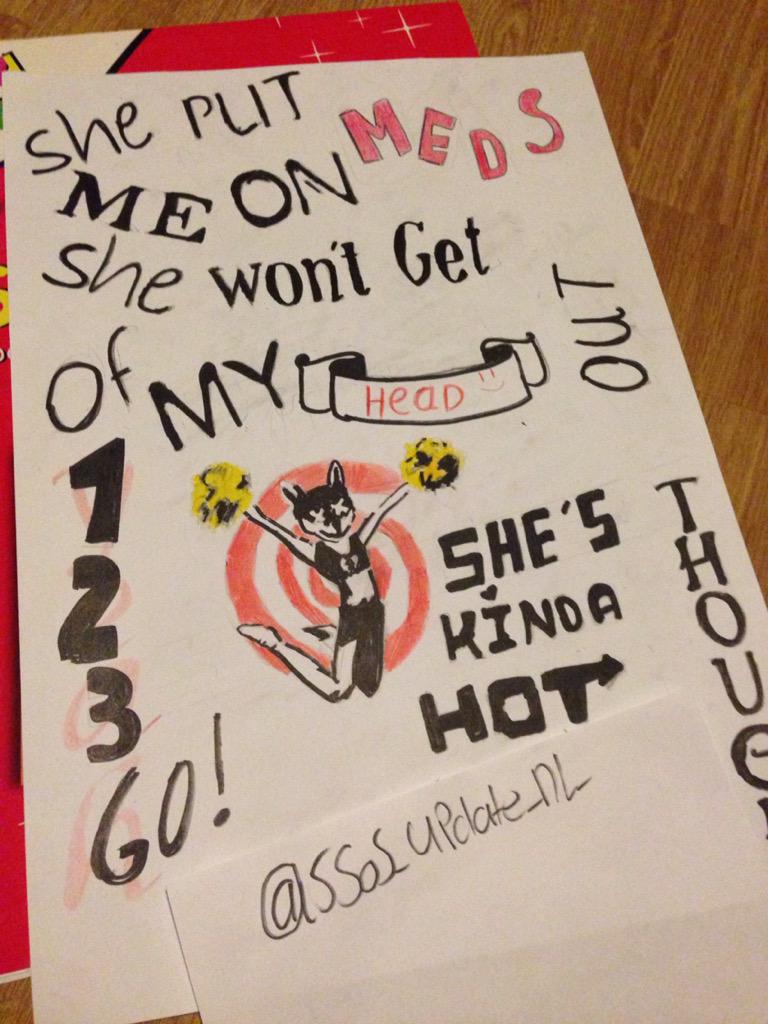 She PUT MEDS
ME ON
She won't Get
OUT
Of MY HEAD
1
2
3
GO!
SHE'S
KINDA
HOT
THOUG
@5SoS_UPdate_NL